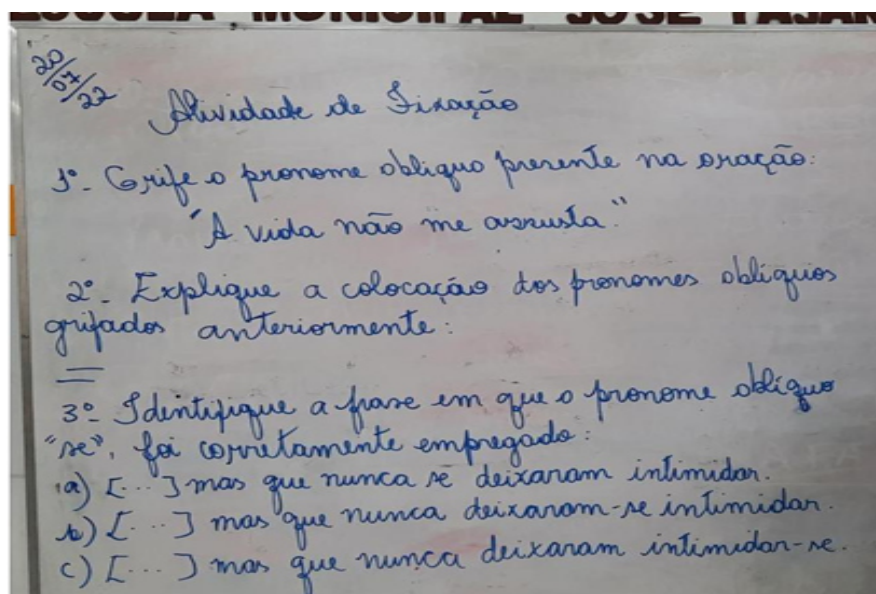 ESCOLA MUNICIPAL JOSÉ
20/07/22
Atividade de Fixação
1º- Grife o pronome obliquo presente na oração:
"A vida não me assusta"
2º- Explique a colocação dos pronomes obliquos
grifados anteriormente:
3º- Identifique a frase em que o pronome obliquo
"se", foi corretamente empregado:
a) [...] mas que nunca se deixaram intimidar.
b) [...] mas que nunca deixaram-se intimidar.
c) [...] mas que nunca deixaram intimidar-se.